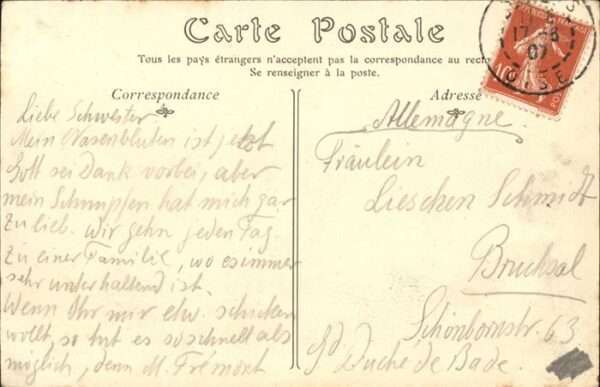 Carte Postale
Tous les pays étrangers n'acceptent pas la correspondance au recto
Se renseigner à la poste.
Correspondance
Liebe Schwester
Mein Nasenbluten ist jetzt
Gott sei Dank vorbei, aber
mein Schnupfen hat mich gar
zu lieb. Wir gehn jeden Tag
zu einer Familie, wo es immer
sehr unterhaltend ist.
Wenn Ihr mir etw. schicken
wollt, so tut es so schnell als
möglich, denn M. Frémont
Adresse
Allemagne.
Fräulein
Lieschen Schmidt
Bruchsal
Schönbornstr. 63
Gd Duché de Bade.
17 -8
07
OISE